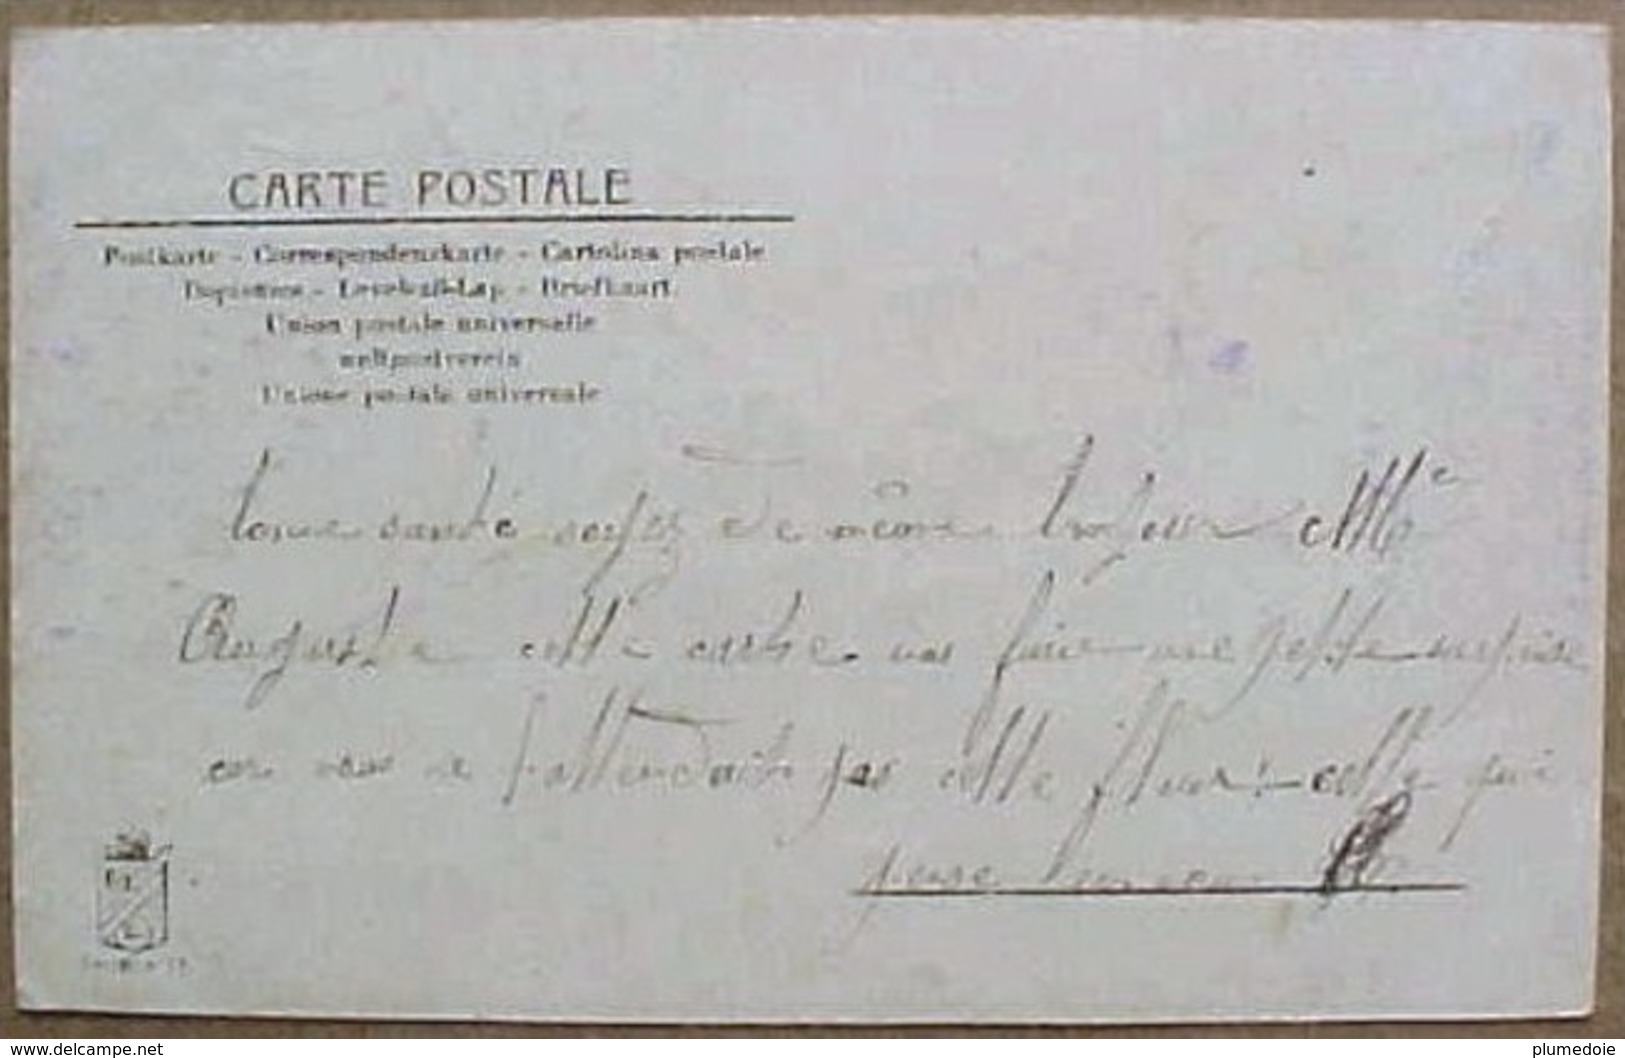 CARTE POSTALE
Postkarte - Correspondenzkarte - Cartolina postale
Dopisnice - Levelező-Lap - Briefkaart
Union postale universelle
weltpostverein
Unione postale universale
bonne santé de même toujour Mlle
Auguste cette carte vas faire une petite surprise
car vous ne l'attendait pas cette fleur cette qui
pense
delcampe.net
plumedoie